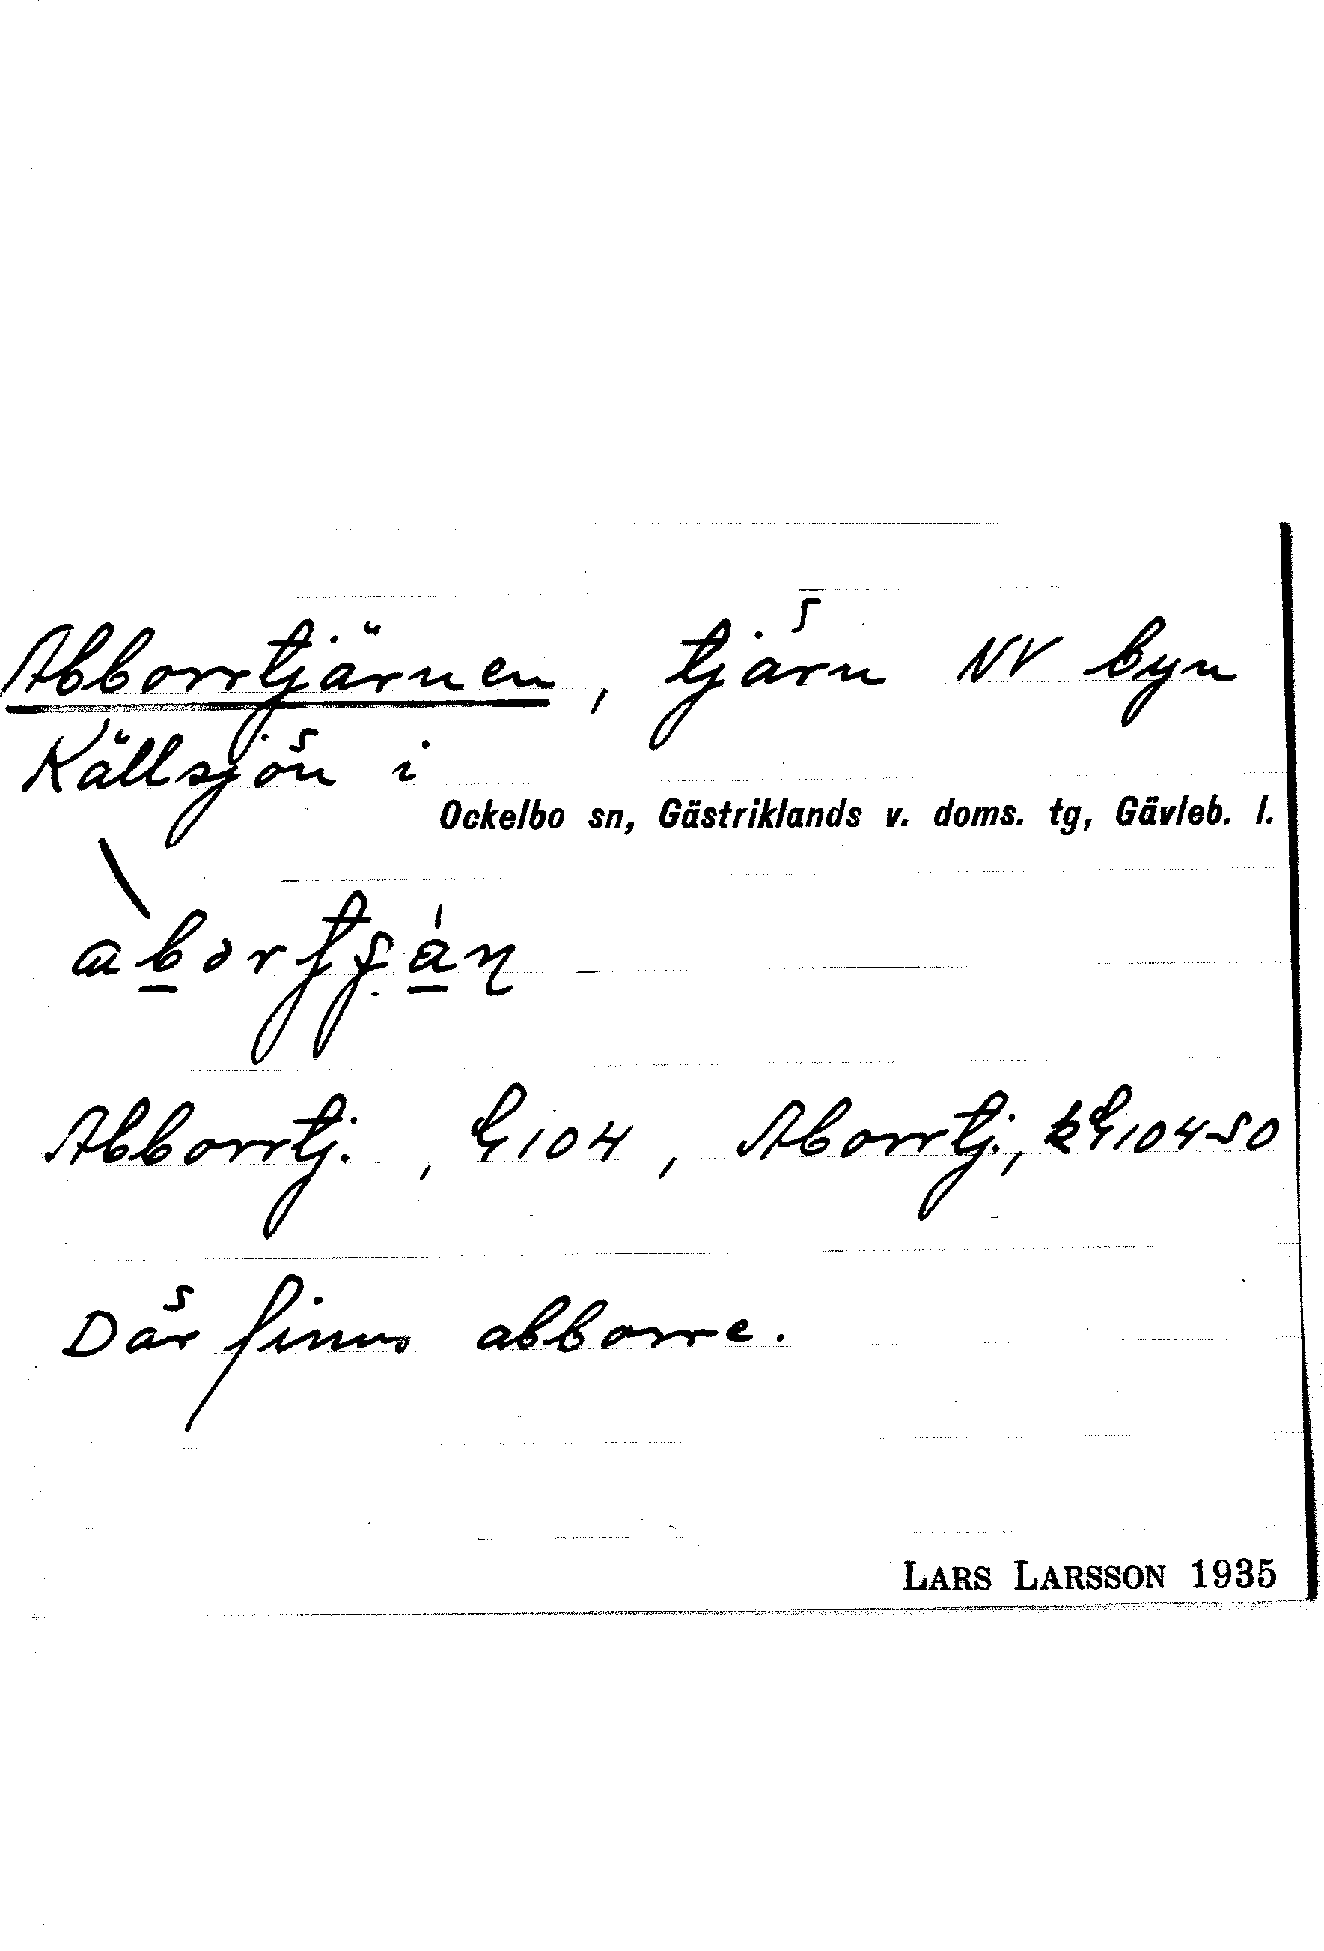 Abborrtjärnen, tjärn NV byn
Källsjön i
Ockelbo sn, Gästriklands v. doms. tg, Gävleb. l.
Abborrtj., G 104, Aborrtj., kG 104 SO
Där finns abborre.
LARS LARSSON 1935